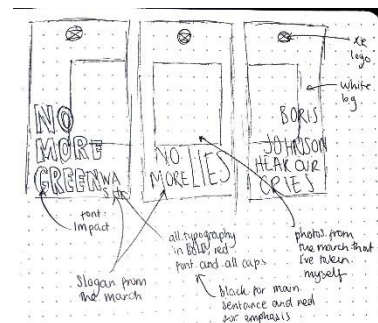 XR
logo
white
bg
NO
MORE
GREENWA
SH
NO
MORE LIES
BORIS
JOHNSON
HEAR OUR
CRIES
font:
Impact
Slogan from
the march
all typography
in BOLD, red
font and all caps
black for main
sentence and red
for emphasis
photos from
the march that
I've taken
myself